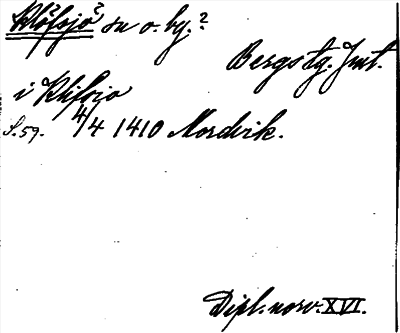 Klöfsjö? sn o. by.?
Bergs tg. Jmt.
i Klifsio
S. 59. 4/4 1410 Nordvik.
Dipl. norv. XVI.